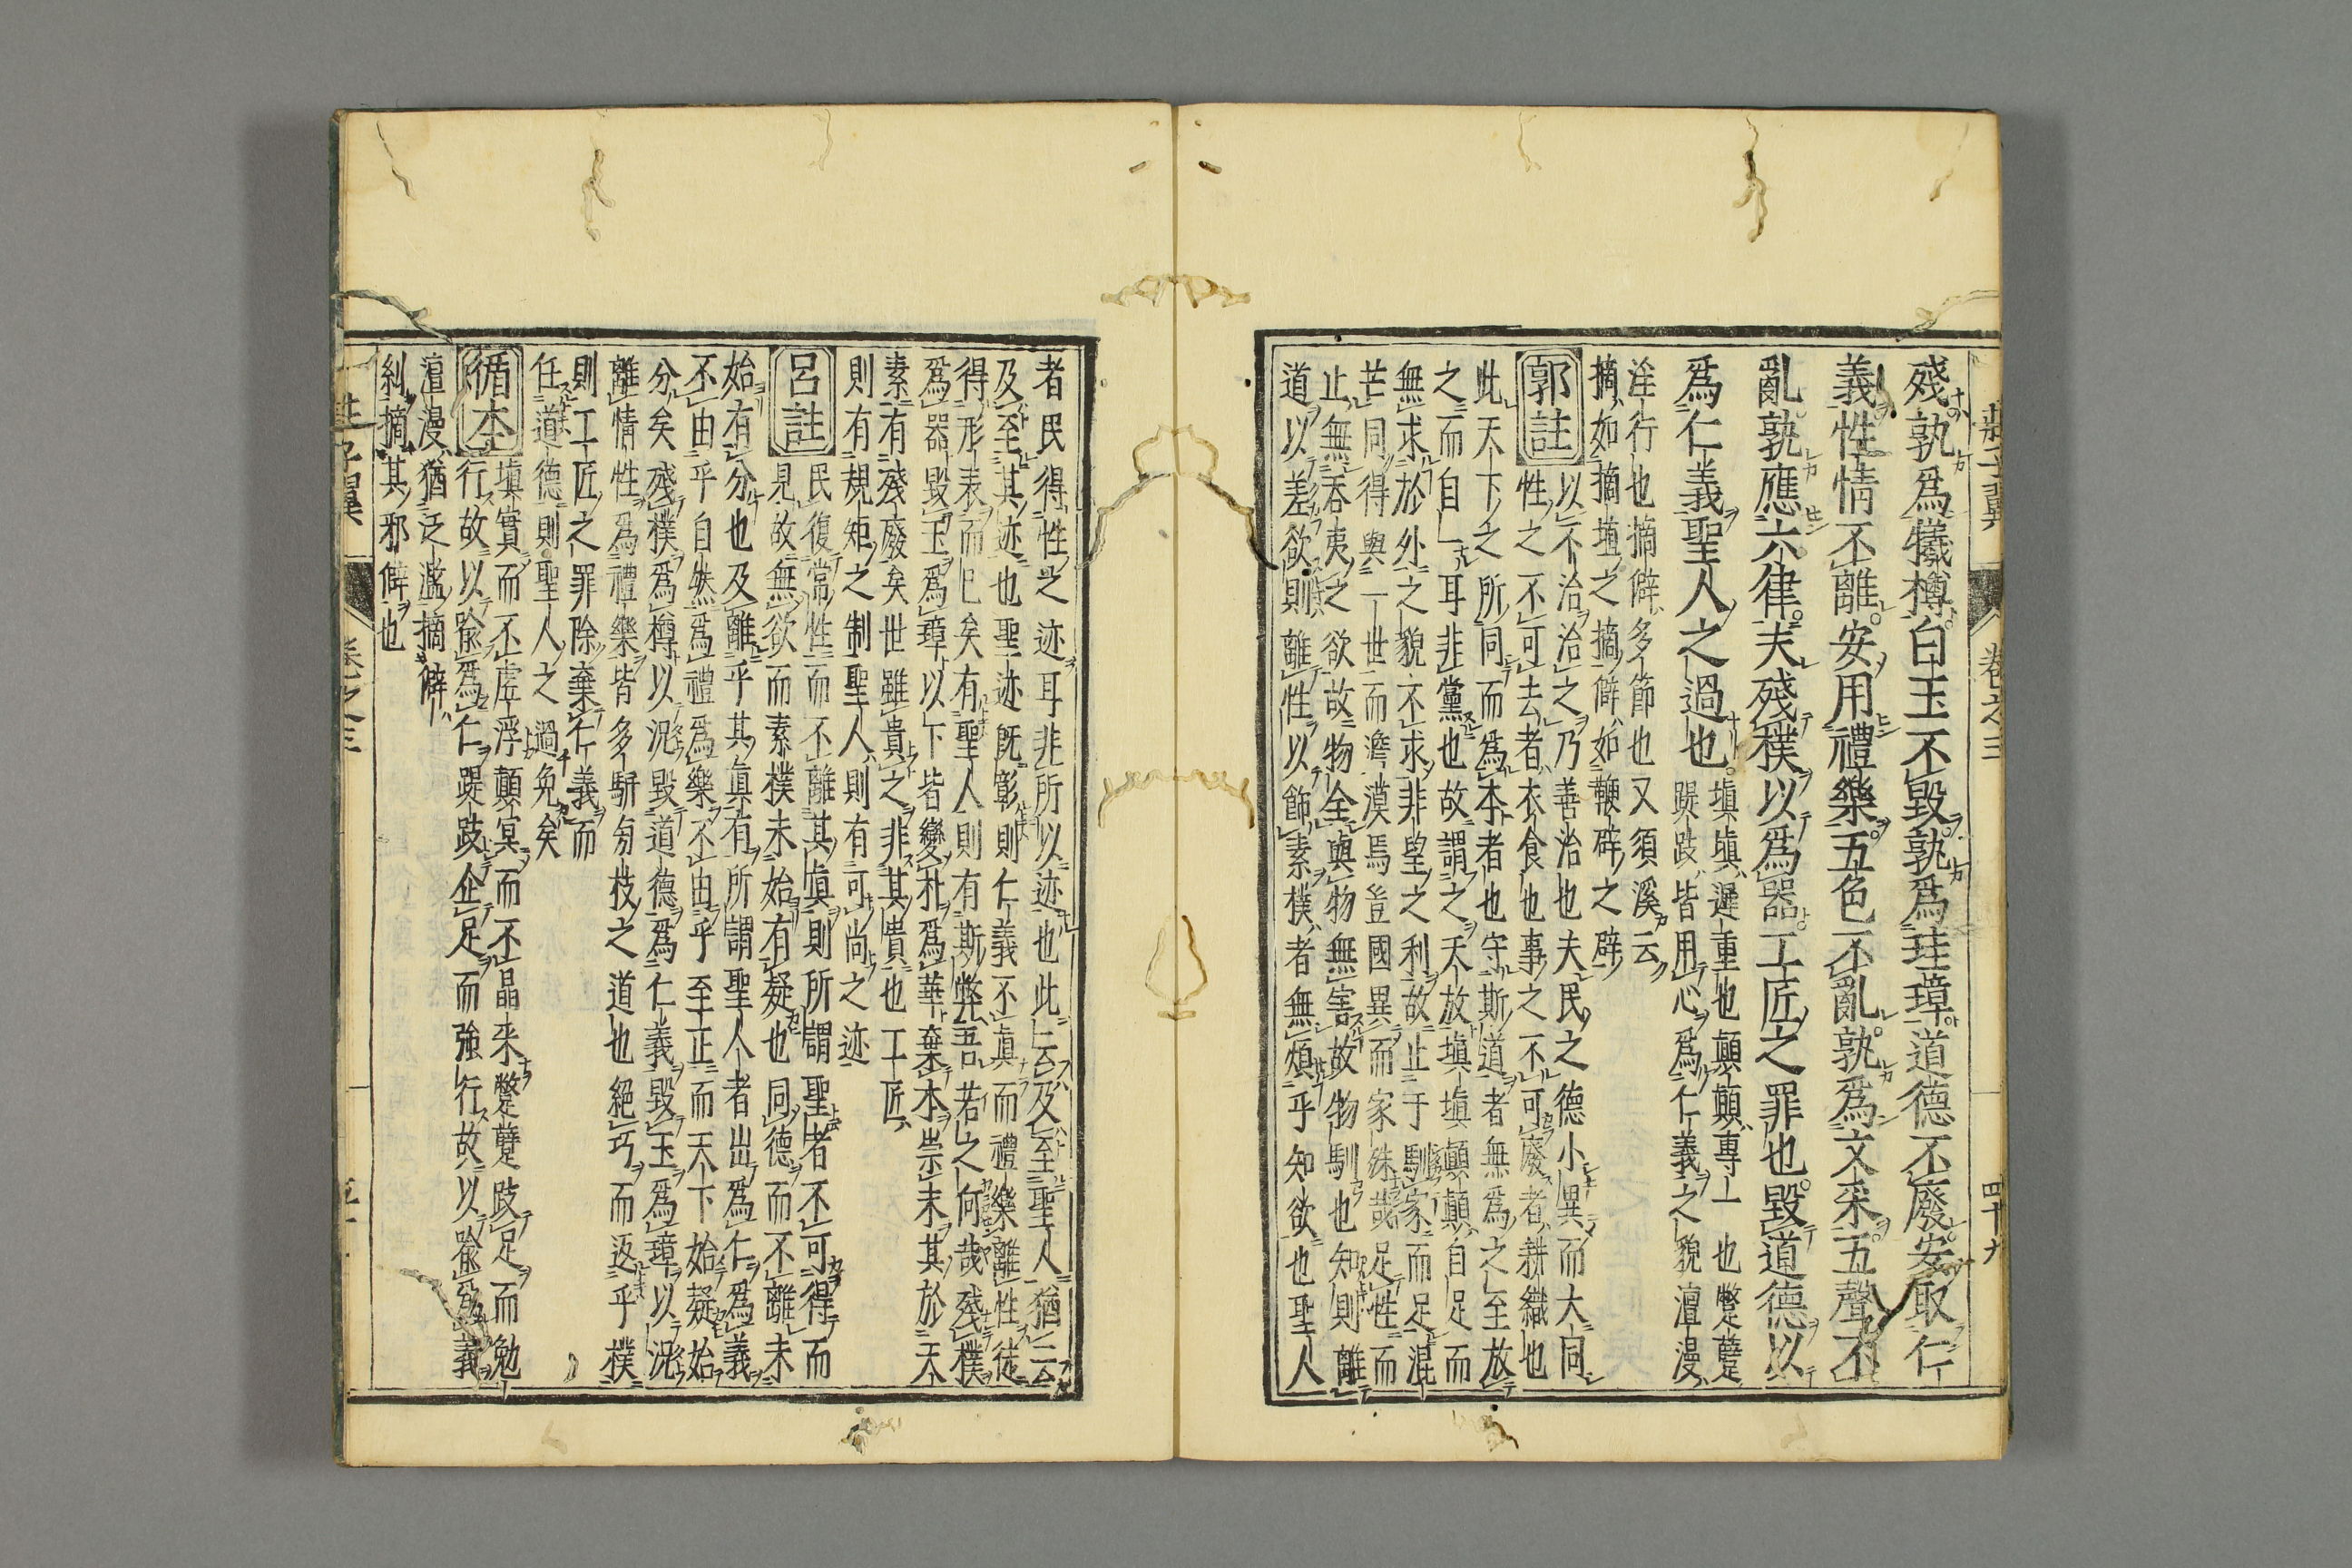 莊子翼 卷之三 四十九
殘孰爲犧樽白玉不毀孰爲珪璋道德不廢安取仁
義性情不離安用禮樂五色不亂孰爲文采五聲不
亂孰應六律夫殘樸以爲器工匠之罪也毀道德以
爲仁義聖人之過也
塡塡遲重也顚顚專一也蹩躠
踶跂皆用心爲仁義之貌澶漫
淫行也摘僻多節也又須溪云
摘如摘埴之摘僻如鞭辟之辟
郭註
以不治治之乃善治也夫民之德小異而大同
性之不可去者衣食也事之不可廢者耕織也
此天下之所同而爲本者也守斯道者無爲之至放
之而自耳非黨也故謂之天放塡塡顚顚自足而
無求於外之貌不求非望之利故止于馴家而足混
芒同得與一世而澹漠焉豈國異而家殊哉足性而
止無吞夷之欲故物全與物無害故物馴也知則離
道以差欲則離性以飾素樸者無煩乎知欲也聖人
者民得性之迹耳非所以迹也此云及至聖人猶云
及至其迹也聖迹既彰則仁義不眞而禮樂離性徒
得形表而已矣有聖人則有斯弊吾若之何哉殘樸
爲器毀玉爲璋以下皆變朴爲華棄本崇末其於天
素有殘廢矣世雖貴之非其貴也工匠
則有規矩之制聖人則有可尚之迹
呂註
民復常性而不離其眞則所謂聖者不可得而
見故無欲而素樸未始有疑也同德而不離未
始有分也及離乎其眞有所謂聖人者出爲仁爲義
不由乎自然爲禮爲樂不由乎至正而天下始疑始
分矣殘樸爲樽以況毀道德爲仁義毀玉爲璋以況
離情性爲禮樂皆多駢旁枝之道也絕巧而返乎樸
則工匠之罪除棄仁義而
任道德則聖人之過免矣
循本
塡實而不虛浮顚冥而不晶采蹩躠跂足而勉
行故以喩爲仁踶跂企足而強行故以喩爲義
澶漫猶泛濫摘僻
糾摘其邪僻也
莊子翼 卷之三